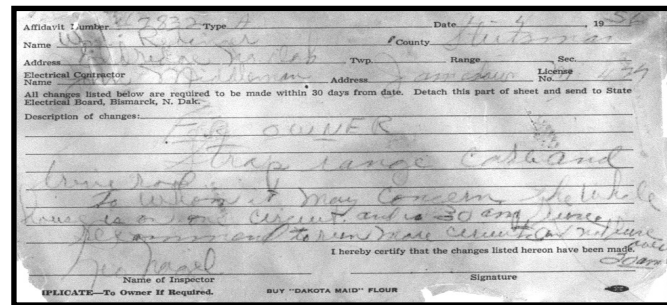 Affidavit Number 7832 Type A Date 4-4 19 56
Name County Stutsman
Address N. Dak Twp. Range Sec.
Electrical Contractor
Name Address Jamestown License No. 479
All changes listed below are required to be made within 30 days from date. Detach this part of sheet and send to State
Electrical Board, Bismarck, N. Dak.
Description of changes:
For OWNER
Strap range cable and
drive rod
To Whom it May Concern The Whole
house is on one circuit and is 30 amp fused
Recommend to run more circuits and not fuse
over 20 amp
I hereby certify that the changes listed hereon have been made.
Nagel
Name of Inspector Signature
IPLICATE—To Owner If Required. BUY "DAKOTA MAID" FLOUR